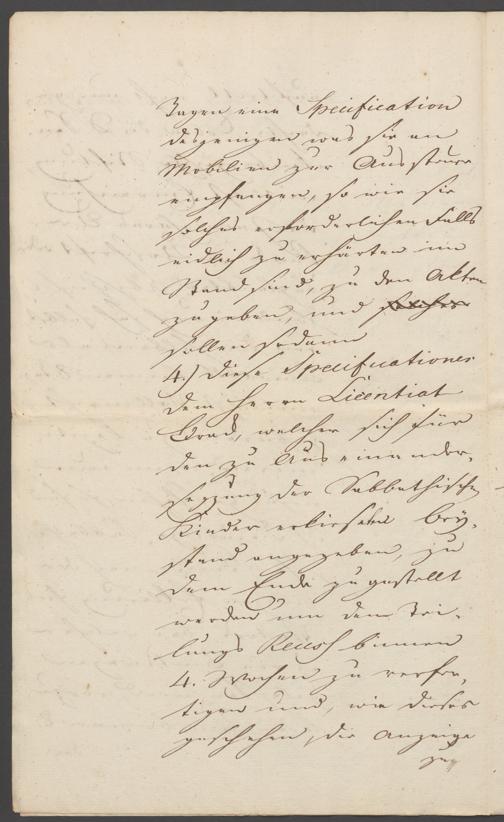 Tagen eine Specification
desjenigen was sie an
Mobilien zur Aussteuer
empfangen, so wie sie
solches erforderlichen Falls
eidlich zu erhärten im
Stand sind, zu den Akten
zugeben, und
sollen sodann
4.) Diese Specificationen
dem Herrn Licentiat
welcher sich für
den zu Auseinander-
sezzung der Sabbathischen
Kinder erkiesten Bey-
stand angegeben, zu
dem Ende zugestellt
werden um den Thei-
lungs Recess binnen
4. Wochen zu verfer-
tigen und, wie dieses
geschehen, die Anzeige
zu